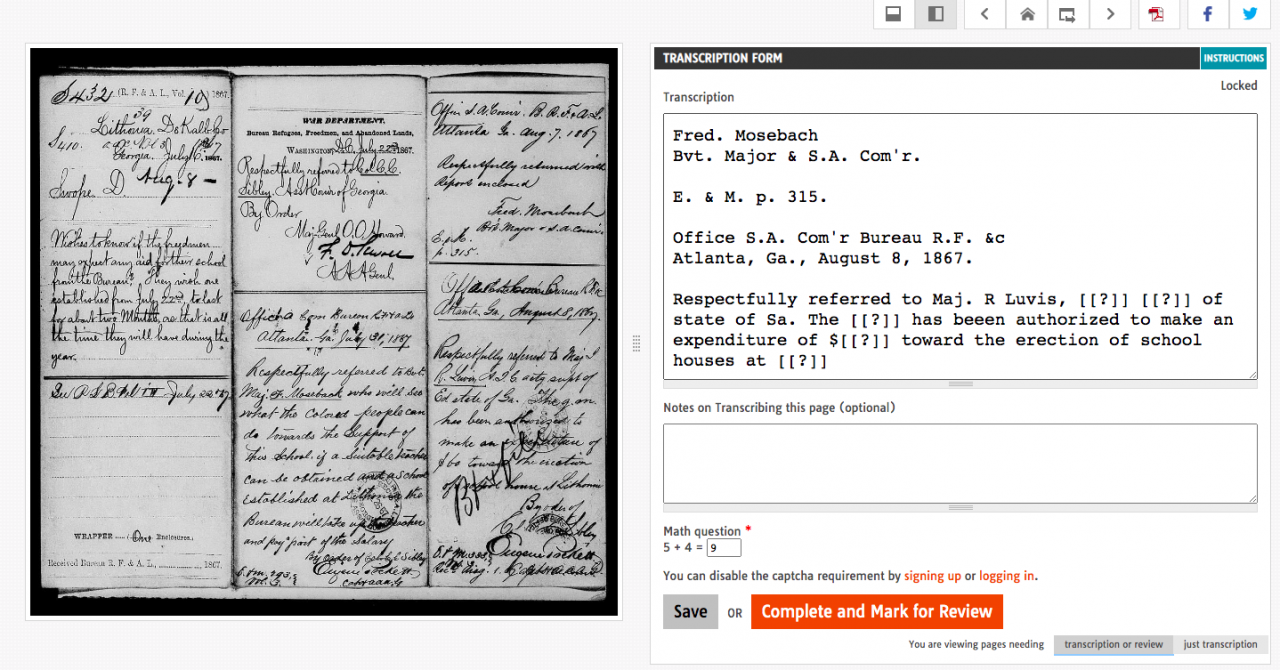 S432 (R. F. & A. L., Vol. 10) 1867.
39
Lithonia, DeKalb Co
S410.
Georgia, July 1867.
Swope. D. Aug. 8 —
Wishes to know if the freedmen
may expect any aid for their school
from the Bureau? They wish one
established from July 22nd, to last
for about two Months, as that is all
the time they will have during the
year.
July 22 '67
WRAPPER One Enclosures.
Received Bureau R. F. & A. L., 1867.
WAR DEPARTMENT,
Bureau Refugees, Freedmen, and Abandoned Lands,
WASHINGTON, D.C. July 22nd 1867.
Respectfully referred to Col. C.C.
Sibley, Asst Com'r of Georgia.
By Order
Maj. Genl O.O. Howard.
A.A.A Genl.
Office a Com Bureau R F & A L
Atlanta Ga. July 31, 1867
Respectfully referred to Bvt.
Maj. F. Moseback who will see
what the Colored people can
do towards the Support of
this School. if a Suitable teacher
can be obtained and a School
established at Lithonia the
Bureau will take up the teacher
and pay part of the Salary
By order of Col C.C. Sibley
Office S.A. Com'r. B. R. F. & A. L.
Atlanta Ga. Aug. 7. 1867
Respectfully returned with
report enclosed
Fred. Mosebach
Bvt. Major & S.A. Com'r.
E. & M.
p. 315.
Bureau R.F. &c
Atlanta, Ga., August 8, 1867.
Respectfully referred to Maj
supt of
Ed state of Ga. The
has been authorized to
make an expenditure of
toward the erection
of school house at Lithonia
By order of
Sibley
TRANSCRIPTION FORM
INSTRUCTIONS
Locked
Transcription
Fred. Mosebach
Bvt. Major & S.A. Com'r.
E. & M. p. 315.
Office S.A. Com'r Bureau R.F. &c
Atlanta, Ga., August 8, 1867.
Respectfully referred to Maj. R Luvis, [[?]] [[?]] of
state of Sa. The [[?]] has beeen authorized to make an
expenditure of $[[?]] toward the erection of school
houses at [[?]]
Notes on Transcribing this page (optional)
Math question *
5 + 4 = 9
You can disable the captcha requirement by signing up or logging in.
Save OR Complete and Mark for Review
You are viewing pages needing transcription or review just transcription